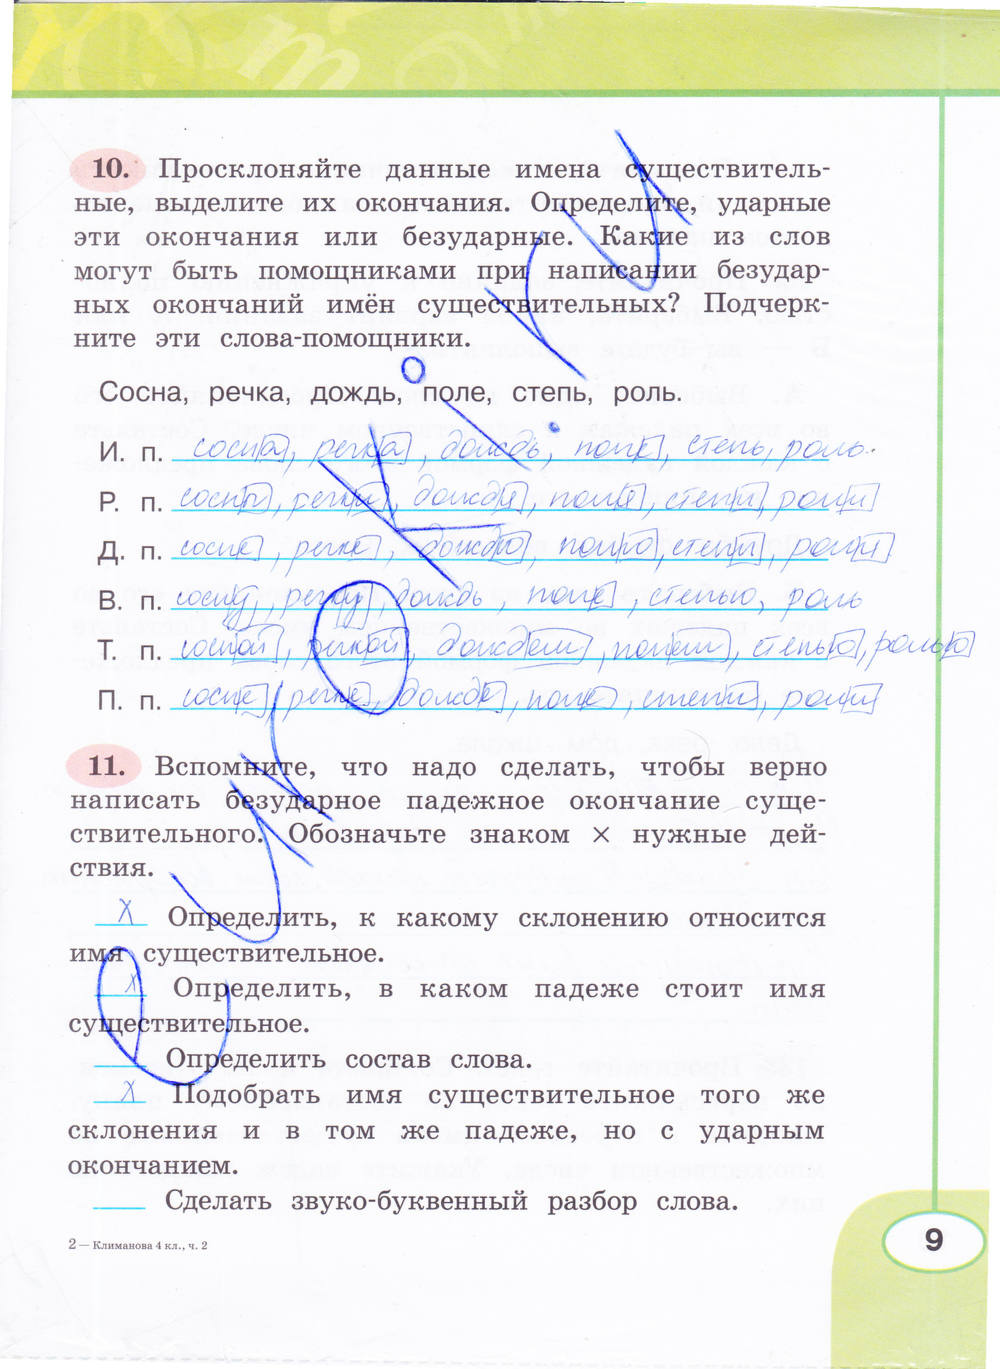 10. Просклоняйте данные имена существитель-
ные, выделите их окончания. Определите, ударные
эти окончания или безударные. Какие из слов
могут быть помощниками при написании безудар-
ных окончаний имён существительных? Подчерк-
ните эти слова-помощники.
Сосна, речка, дождь, поле, степь, роль.
И. п. сосна, речка, дождь, поле, степь, роль.
Р. п. сосны, речки, дождя, поля, степи, роли
Д. п. сосне, речке, дождю, полю, степи, роли
В. п. сосну, речку, дождь, поле, степью, роль
Т. п. сосной, речкой, дождем, полем, степью, ролью
П. п. сосне, речке, дожде, поле, степи, роли
11. Вспомните, что надо сделать, чтобы верно
написать безударное падежное окончание суще-
ствительного. Обозначьте знаком × нужные дей-
ствия.
х Определить, к какому склонению относится
имя существительное.
х Определить, в каком падеже стоит имя
существительное.
Определить состав слова.
х Подобрать имя существительное того же
склонения и в том же падеже, но с ударным
окончанием.
Сделать звуко-буквенный разбор слова.
2 — Климанова 4 кл., ч. 2
9